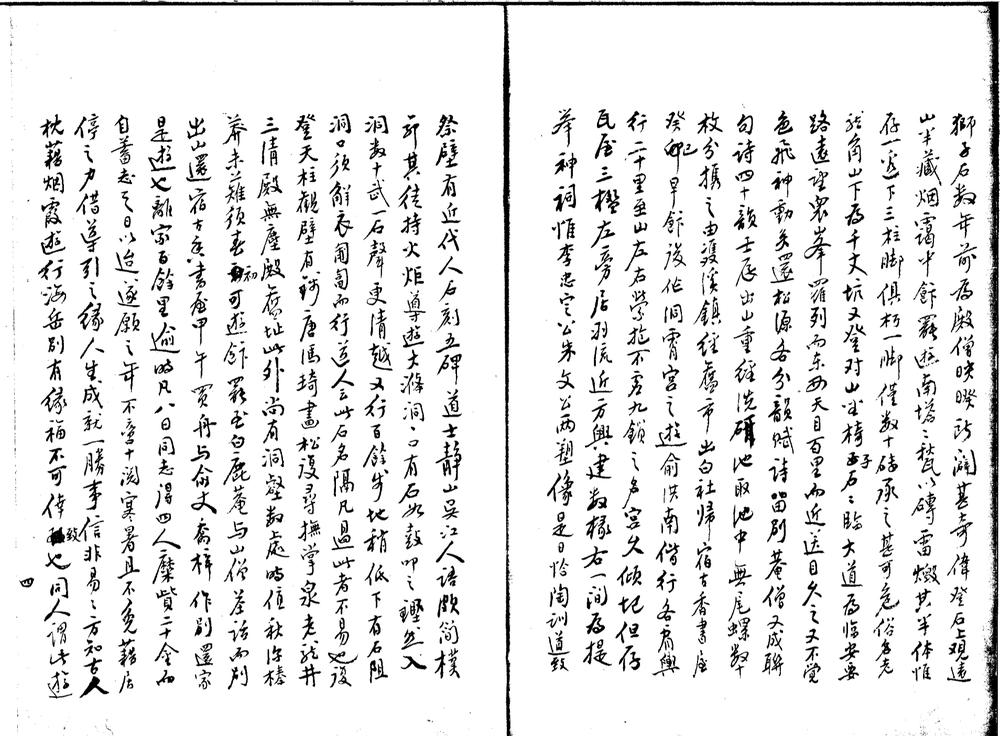 獅子石數年前為殿僧映暌所闢甚奇偉登石上觀遠
山半藏烟靄中飰罷遊南塔塔甃以磚雷燬其半体惟
存一邊下三柱脚俱朽一脚僅數十磚承之甚可危俗名老
龍角山下為千丈坑又登對山坐椅子石石臨大道為臨安要
路遠望衆峯羅列而東西天目百里而近送目久之又不覺
色飛神動矣還松源各分韻賦詩留別菴僧又成聯
句詩四十韻壬辰出山重經洗硯池取池中無尾螺數
枚分攜之由雙溪鎮經舊市出白社歸宿古香書屋
癸巳早飰後作洞霄宮之遊俞洪南偕行各肩輿
行二十里至山左右縈拖不虛九鎖之名宮久傾圮但存
瓦屋三楹左旁居羽流近方興建數椽右一間為提
舉神祠惟李忠定公朱文公兩塑像是日恰陶訓道致
祭壁有近代人石刻五碑道士靜山吳江人語頗簡樸
命其徒持火炬導遊大滌洞洞口有石如鼓叩之鏗然入
洞數十武一石聲更清越又行百餘步地稍低下有石阻
洞口須解衣匍匐而行道人云此石名隔凡過此者不易也復
登天柱觀壁有錢唐馮琦畫松復尋撫掌泉老龍井
三清殿無塵殿舊址此外尚有洞壑數處時值秋深榛
莽未薙須春初可遊飰罷至白鹿菴与山僧茶話而別
出山還宿古香書屋甲午買舟与俞丈喬梓作別還家
是遊也離家百餘里逾時凡八日同志得四人糜貲二十金而
自蓄志之日以迨遂願之年不啻十閱寒暑且不免藉居
停之力借導引之緣人生成就一勝事信非易易方知古人
枕藉烟霞遊行海岳別有緣福不可倖致也同人謂此遊
四